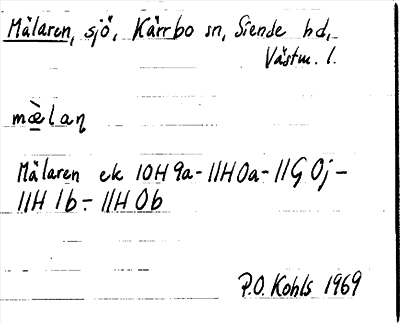 Mälaren, sjö, Kärrbo sn, Siende hd,
Västm. l.
mæ̀laɳ
Mälaren ek 10H9a-11H0a-11G0j-
11H1b-11H0b
P.O. Kohls 1969